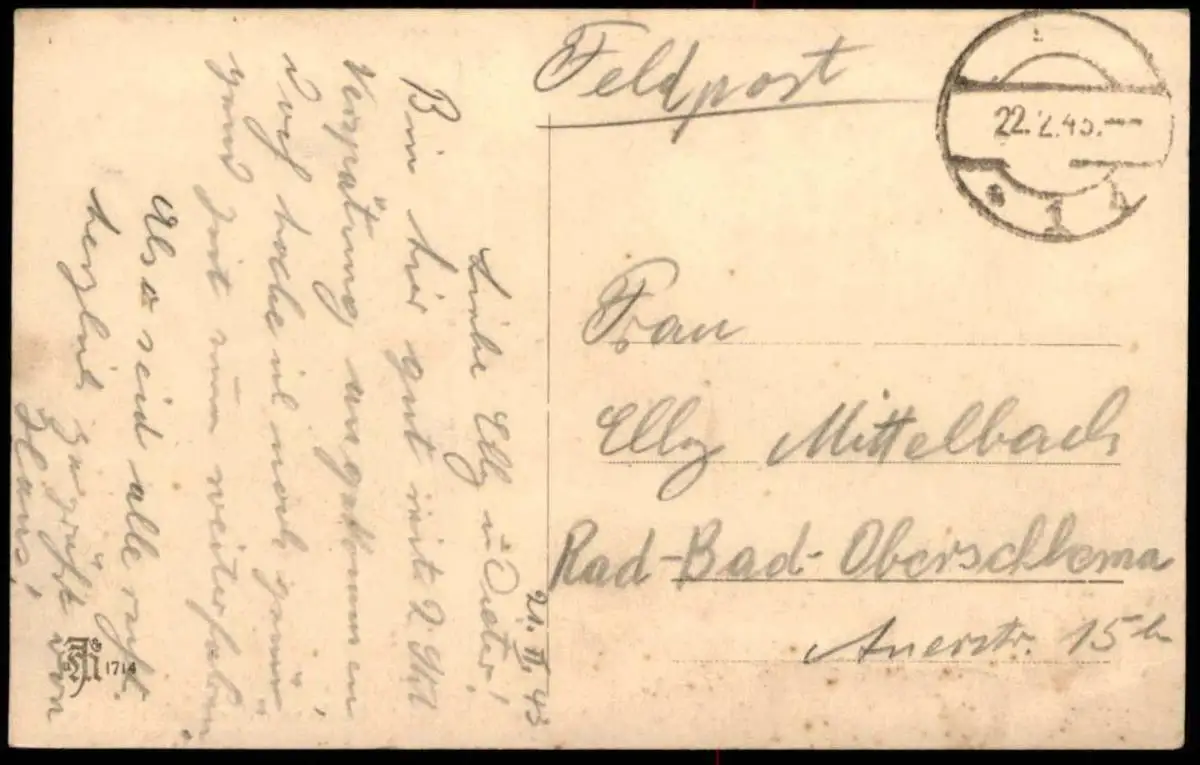 Feldpost
22.2.43.
a 1 b
Frau
Elly Mittelbach
Rad-Bad-Oberschlema
Auerstr. 15b
21. II. 43
Liebe Elly u. Dieter!
Bin hier gut mit 2 Std
Verspätung angekommen,
doch habe ich noch genü-
gend Zeit zum weiterfahren.
Also seid alle recht
herzlich gegrüßt von
Hans!
1714